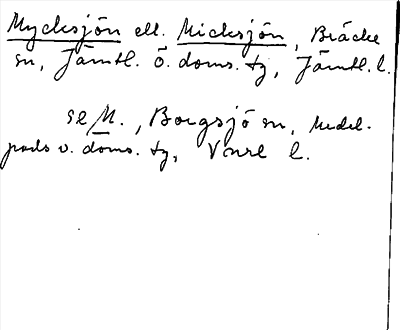 Mycksjön ell. Micksjön, Bräcke
sn, Jämtl. ö. doms. tg, Jämtl. l.
se M., Borgsjö sn, Medel-
pads v. doms. tg, Vnrl l.